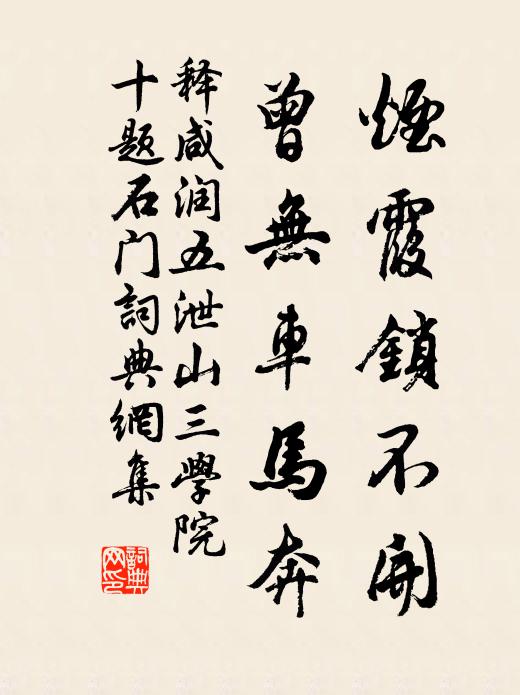 煙霞鎖不開
曾無車馬奔
释咸润五泄山三學院
十题石门詞典網集
詞典网印